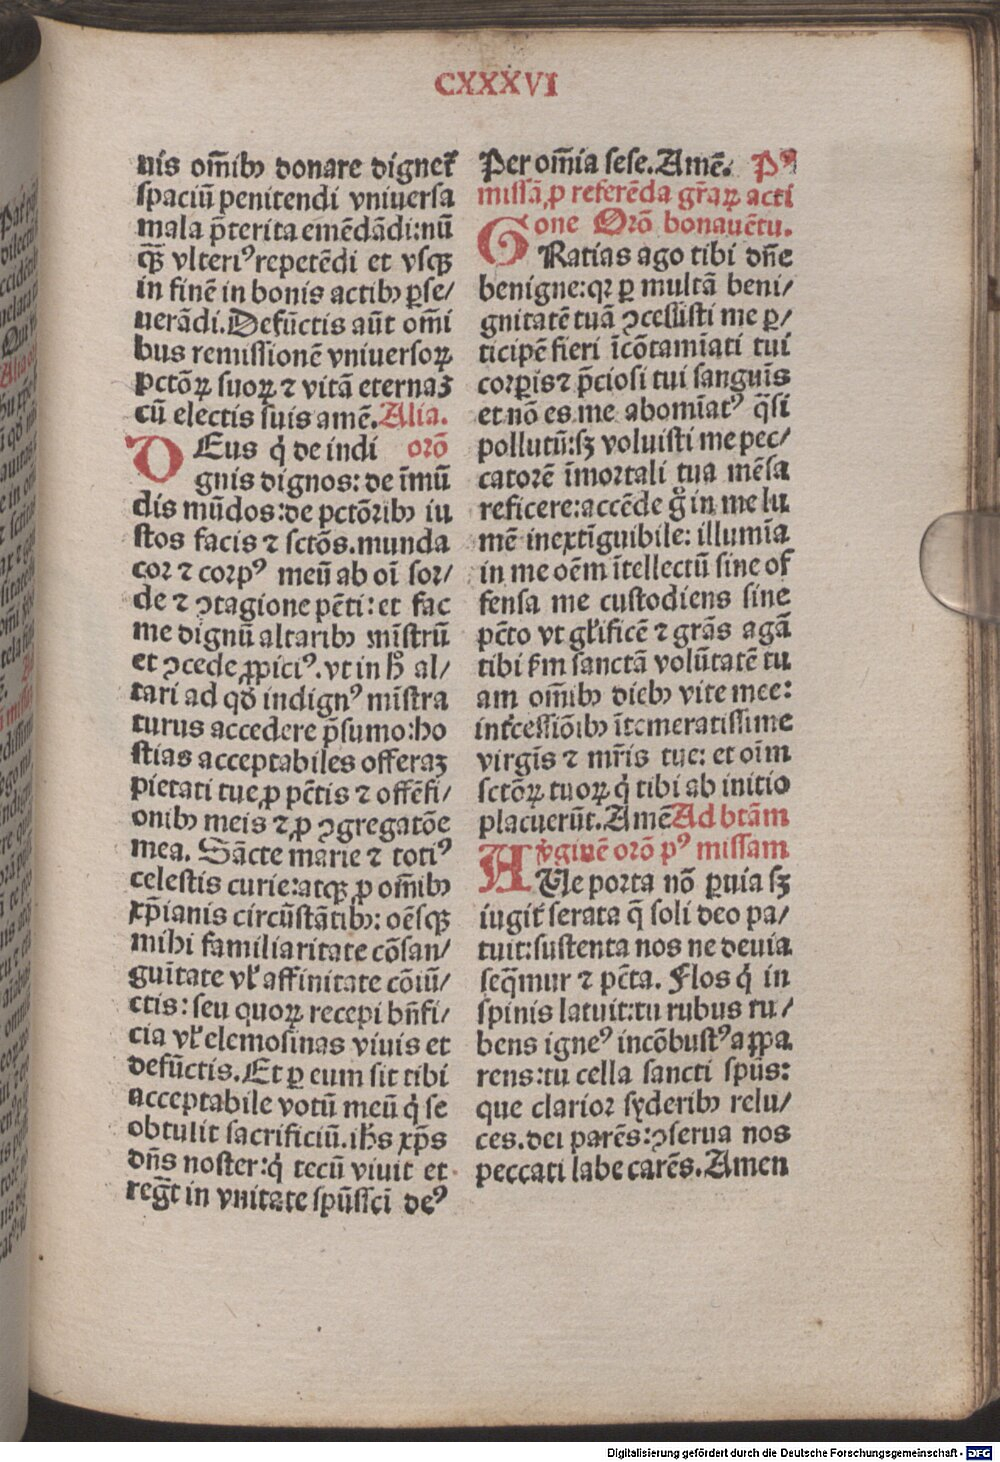 CXXXVI
nis om̅ib⁊ donare dignet᷑
spaciū penitendi vniuersa
mala p̄terita emēdādi:nū
q̄ꝫ vlteriꝰ repetēdi et vsqꝫ
in finē in bonis actibꝫ ꝑse/
uerādi.Defūctis aūt om̅i
bus remissionē vniuersoꝝ
pctōꝝ suoꝝ ⁊ vitā eternaꝫ
cū electis suis amē.Alia.
DEus q̇ de indi orō
gnis dignos: de īmū
dis mūdos:de pctōribꝫ iu
stos facis ⁊ sctōs.munda
cor ⁊ corpꝰ meū ab oī sor/
de ⁊ ꝯtagione pēti: et fac
me dignū altaribꝫ mīstrū
et ꝯcede ꝓpiciꝰ. vt in h̄ al/
tari ad qđ indignꝰ mīstra
turus accedere p̄sumo:ho
stias acceptabiles offeraꝫ
pietati tue,ꝓ pētis ⁊ offēsi/
onibꝫ meis ⁊ ꝓ ꝯgregatōe
mea. Sācte marie ⁊ totiꝰ
celestis curie:atqꝫ ꝓ om̅ibꝫ
xp̄ianis circūstātibꝫ: oēsqꝫ
mihi familiaritate cōsan/
guītate vł affinitate cōiū/
ctis: seu quoꝝ recepi bn̄fi/
cia vł elemosinas viuis et
defūctis.Et ꝑ eum sit tibi
acceptabile votū meū q̇ se
obtulit sacrificiū.ihs̄ xp̄s
dn̄s noster:q̇ tecū viuit et
reg̅t in vnitate spūssci̅ deꝰ
Per om̅ia sese.Amē. Pꝰ
missā,ꝓ referēda gr̄aꝝ acti
one Orō bonauētu.
GRatias ago tibi dn̄e
benigne:qꝛ ꝑ multā beni/
gnitatē tuā ꝯcessisti me ꝑ/
ticipē fieri īcōtamīati tui
corꝑis ⁊ p̄ciosi tui sanguīs
et nō es me abomīatꝰ q̄si
pollutū:sꝫ voluisti me pec/
catorē īmortali tua mēsa
reficere:accēde g̊ in me lu
mē inextīguibile: illumīa
in me oēm ītellectū sine of
fensa me custodiens sine
pēto vt głificē ⁊ grās agā
tibi ẜm sanctā volūtatē tu
am om̅ibꝫ diebꝫ vite mee:
int̄cessiōibꝫ ītemeratissime
virgīs ⁊ mr̄is tue: et oīm
sctōꝝ tuoꝝ q̇ tibi ab initio
placuerūt.Amē Ad btām
v̇giuē orō pꝰ missam
AUe porta nō ꝑuia sꝫ
iugit᷑ serata q̄ soli deo pa/
tuit:sustenta nos ne deuia
seq̄mur ⁊ pēta. Flos q̇ in
spinis latuit:tu rubus ru/
bens igneꝰ incōbustꝰ aꝓpa
rens:tu cella sancti spūs:
que clarior syderibꝫ relu/
ces.dei parēs:ꝯserua nos
peccati labe carēs.Amen
Digitalisierung gefördert durch die Deutsche Forschungsgemeinschaft - DFG